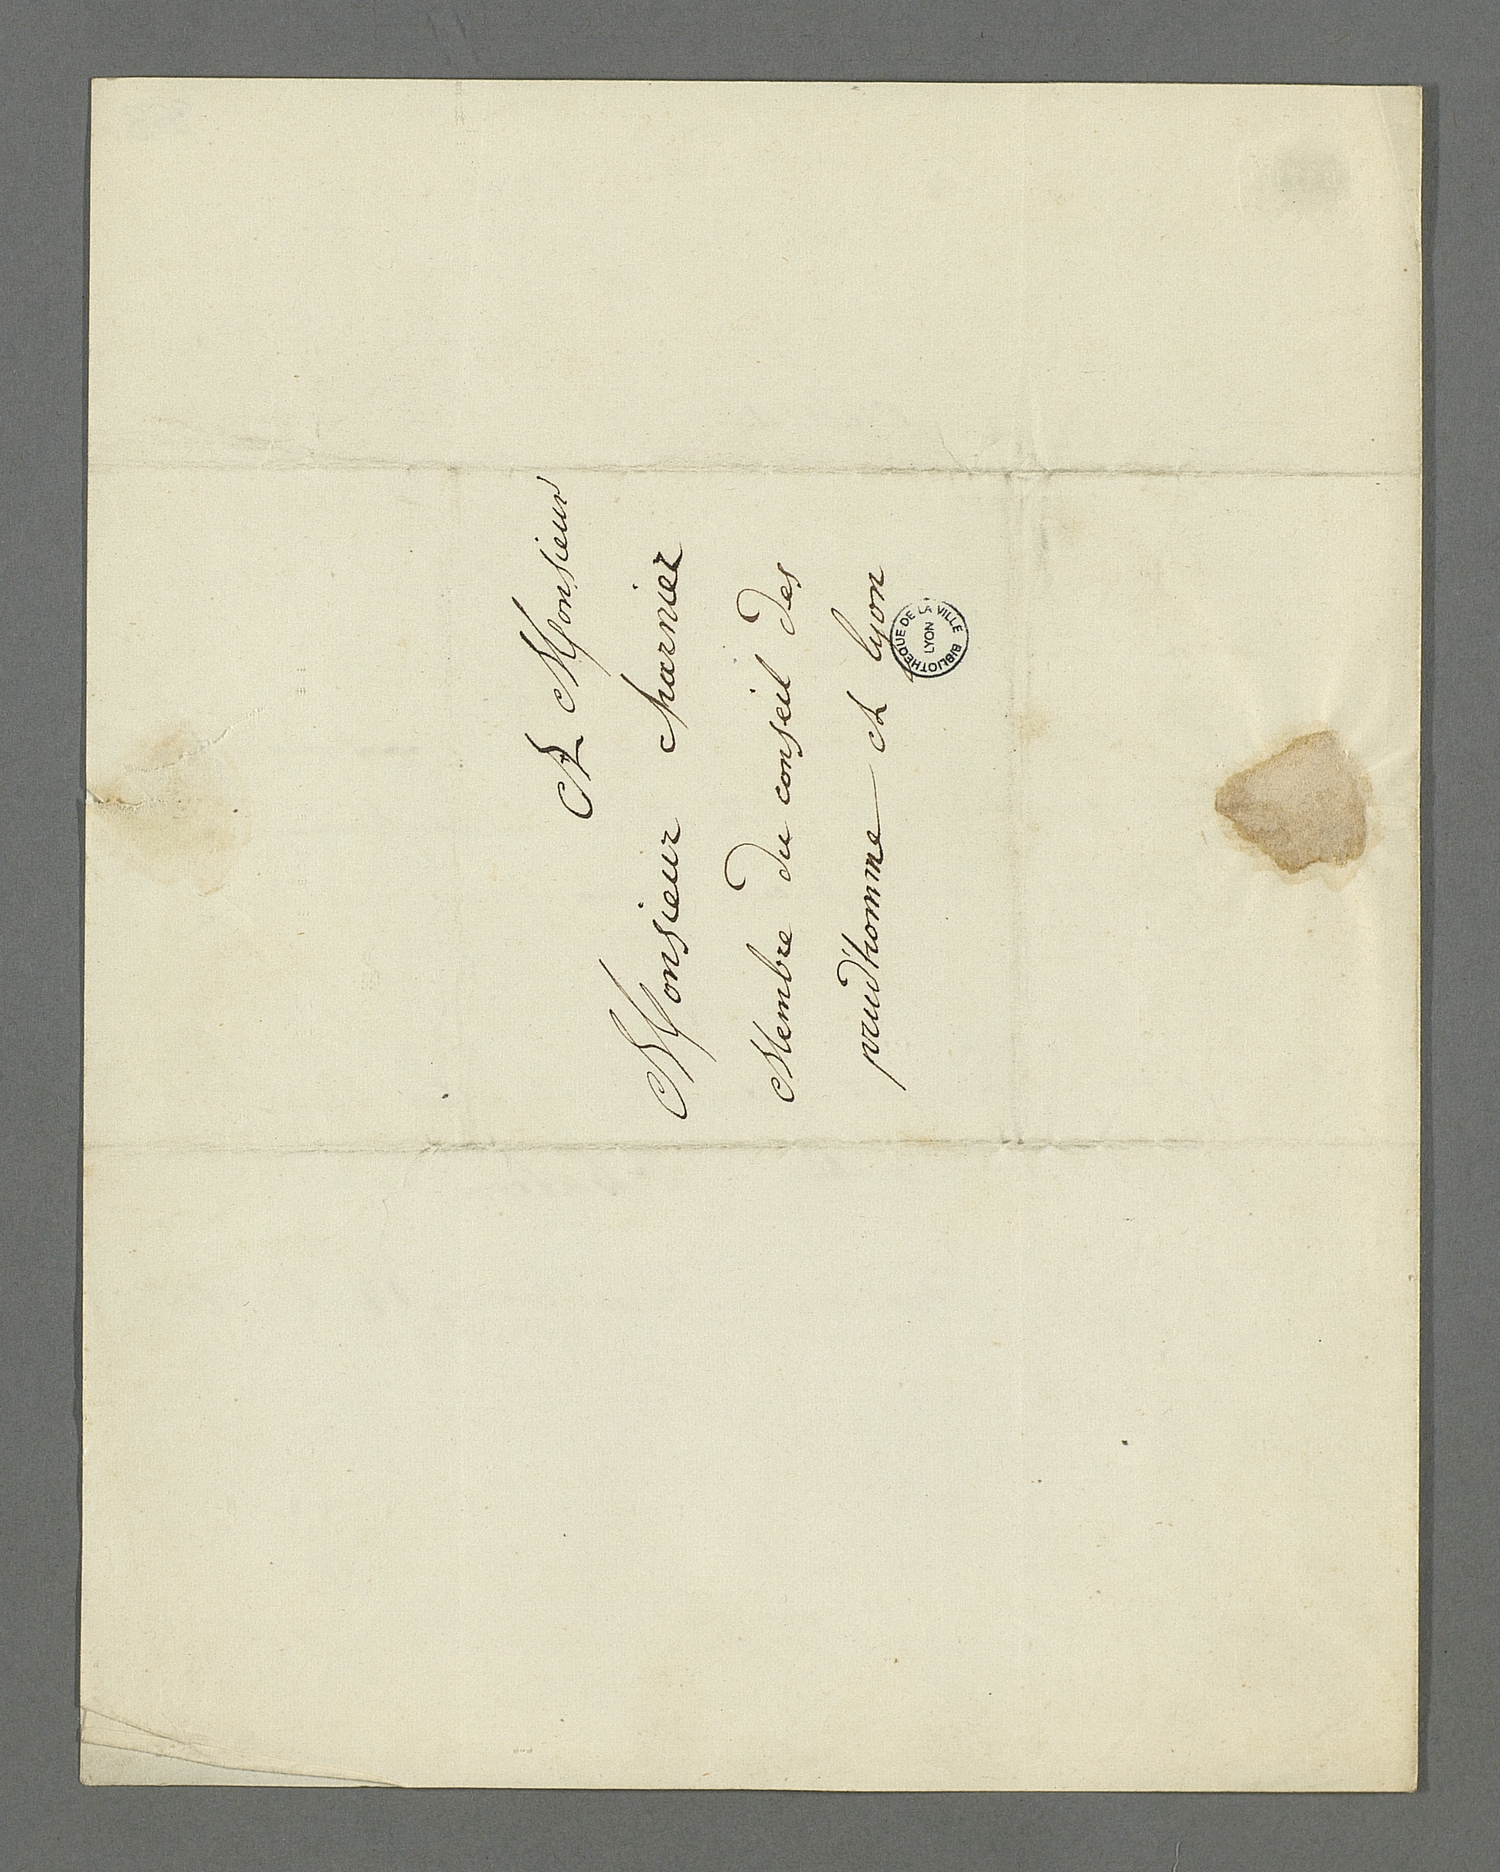 A Monsieur
Monsieur charnier
Membre du conseil des
prud'homme à lyon
BIBLIOTHEQUE DE LA VILLE
LYON